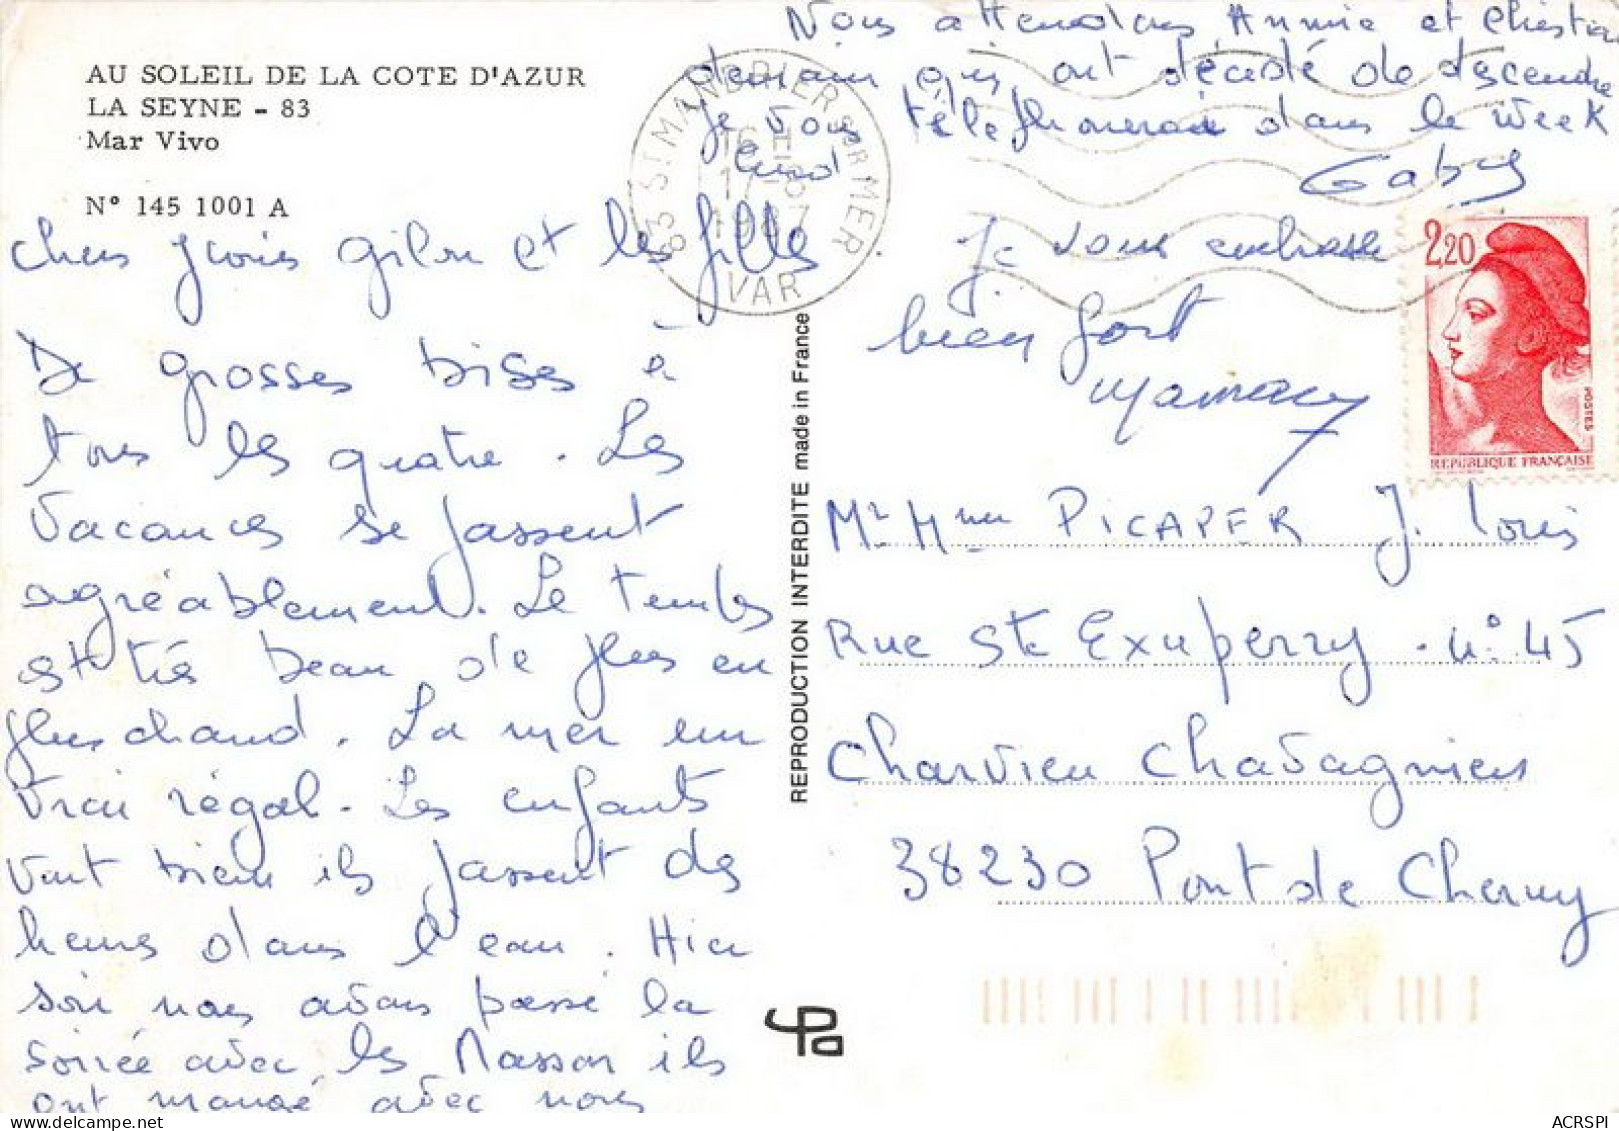 AU SOLEIL DE LA COTE D'AZUR
LA SEYNE - 83
Mar Vivo
N° 145 1001 A
chers J Louis Gilou et les filles
De grosses bises à
tous les quatre. Les
vacances se passent
agréablement. Le temps
est très beau, de plus en
plus chaud. La mer un
vrai régal. Les enfants
vont bien ils passent des
heures dans l'eau. Hier
soir nous avons passé la
soirée avec les Masson ils
ont mangé avec nous
Nous attendons Annie et Christian
demain qui ont décidé de descendre
je vous téléphonerai dans le week
end
Gaby
Je vous embrasse
bien fort
Mamany
83 ST MANDRIER SUR MER
16 H
17-8
1987
VAR
2,20
POSTES
REPUBLIQUE FRANÇAISE
REPRODUCTION INTERDITE made in France
Mr Mme PICAPER J. Louis
Rue Ste Exuperry . n° 45
Charvieu Chavagnieu
38230 Pont de Cheruy
ACRSPI